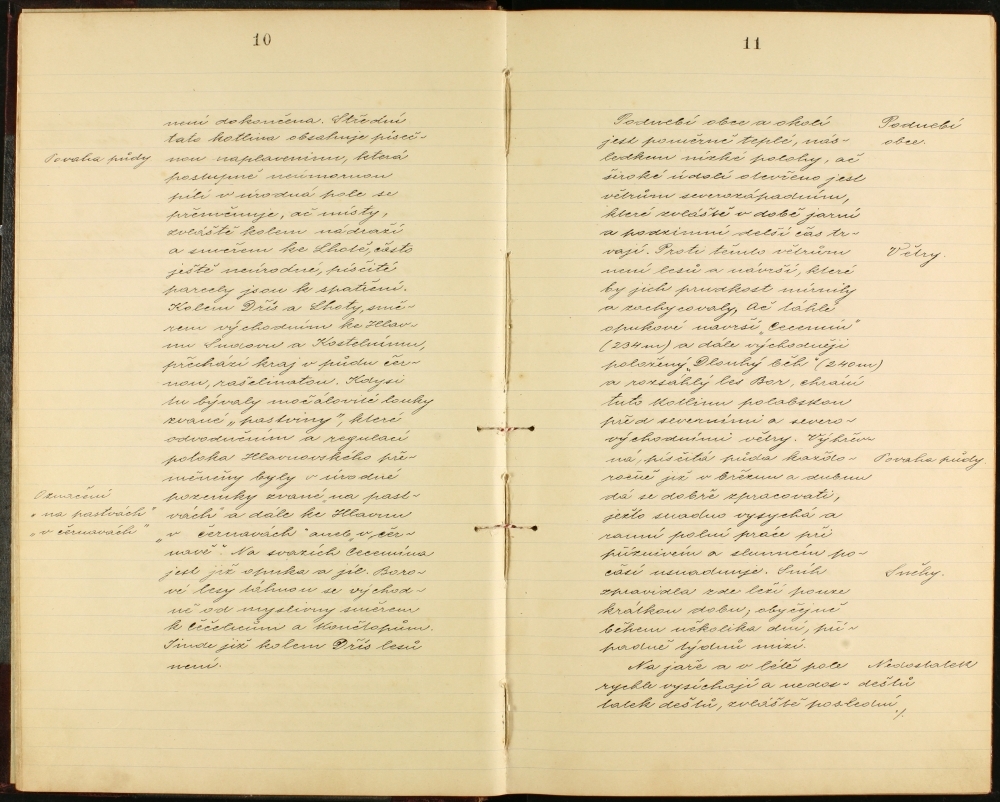 10
není dokončena. Střední
tato kotlina obsahuje píseč-
Povaha půdy
nou naplaveninu, která
postupně neúmornou
pílí v úrodná pole se
přeměňuje, ač místy,
zvláště kolem nádraží
a směrem ke Lhotě, často
ještě neúrodné, písčité
parcely jsou k spatření.
Kolem Dřís a Lhoty, smě-
rem východním ke Hlav-
nu Sudovu a Kostelnímu,
přechází kraj v půdu čer-
nou, rašelinatou. Kdysi
tu bývaly močálovité louky
zvané „pastviny", které
odvodněním a regulací
potoka Hlavnovského pře-
měněny byly v úrodné
Označení
pozemky zvané „na past-
„na pastvách"
vách" a dále ke Hlavnu
„v černavách"
„v černavách" aneb „v čer-
navě". Na svazích Cecemína
jest již opuka a jíl. Boro-
vé lesy táhnou se východ-
ně od myslivny směrem
k Čečelicům a Konětopům.
Jinde již kolem Dřís lesů
není.
11
Podnebí obce a okolí
Podnebí
jest poměrně teplé, nás-
obce.
ledkem nízké polohy, ač
široké údolí otevřeno jest
větrům severozápadním,
které zvláště v době jarní
a podzimní delší čas tr-
vají. Proti těmto větrům
Větry.
není lesů a návrší, které
by jich prudkost mírnily
a zachycovaly. Ač táhlé
opukové návrší „Cecemín"
(234m) a dále východněji
položený „Dlouhý běh" (240m)
a rozsáhlý les Bor, chrání
tuto kotlinu polabskou
před severními a severo-
východními větry. Výhřev
ná, písčitá půda každo-
Povaha půdy.
ročně již v březnu a dubnu
dá se dobře zpracovati,
ježto snadno vysychá a
ranní polní práce při
příznivém a slunném po-
časí usnadňuje. Sníh
Sněhy.
zpravidla zde leží pouze
krátkou dobu; obyčejně
během několika dní, pří-
padně týdnů mizí.
Na jaře a v létě pole
Nedostatek
rychle vysíchají a nedos-
dešťů
tatek dešťů, zvláště poslední
./.